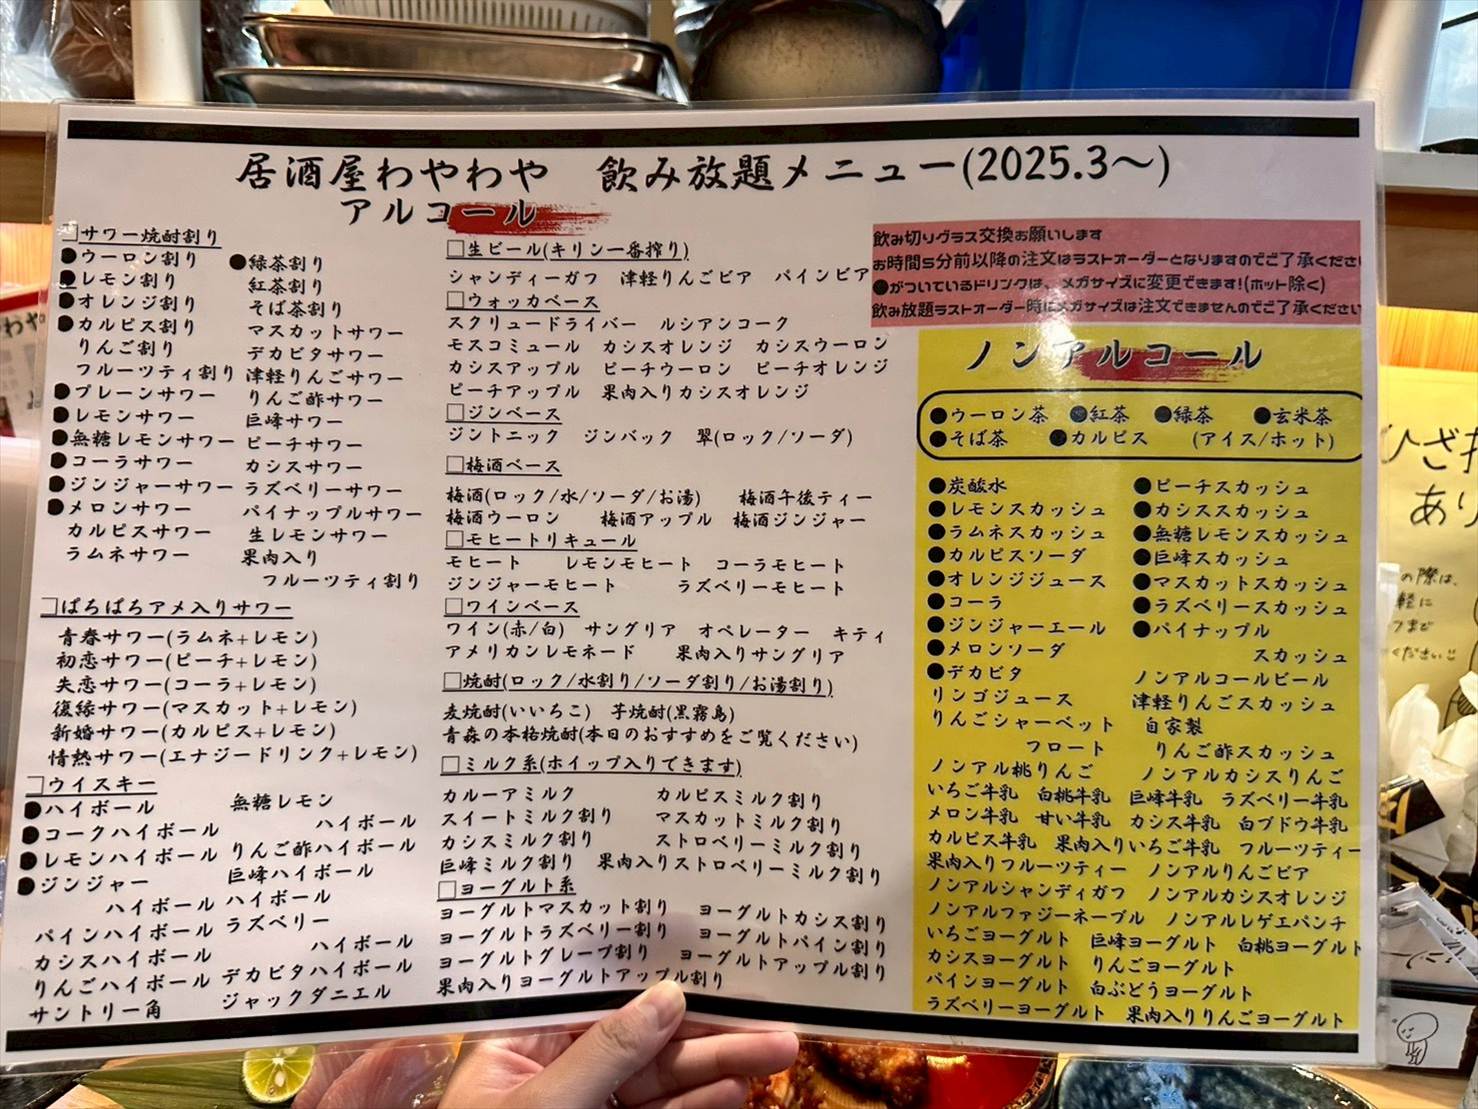 居酒屋わやわや　飲み放題メニュー(2025.3〜)
アルコール
□サワー焼酎割り
●ウーロン割り　●緑茶割り
●レモン割り　紅茶割り
●オレンジ割り　そば茶割り
●カルピス割り　マスカットサワー
りんご割り　デカビタサワー
フルーツティ割り　津軽りんごサワー
●プレーンサワー　りんご酢サワー
●レモンサワー　巨峰サワー
●無糖レモンサワー　ピーチサワー
●コーラサワー　カシスサワー
●ジンジャーサワー　ラズベリーサワー
●メロンサワー　パイナップルサワー
カルピスサワー　生レモンサワー
ラムネサワー　果肉入り
フルーツティ割り
□ぱちぱちアメ入りサワー
青春サワー(ラムネ+レモン)
初恋サワー(ピーチ+レモン)
失恋サワー(コーラ+レモン)
復縁サワー(マスカット+レモン)
新婚サワー(カルピス+レモン)
情熱サワー(エナジードリンク+レモン)
□ウイスキー
●ハイボール　無糖レモン
●コークハイボール　ハイボール
●レモンハイボール　りんご酢ハイボール
●ジンジャー　巨峰ハイボール
ハイボール　ハイボール
パインハイボール　ラズベリー
カシスハイボール　ハイボール
りんごハイボール　デカビタハイボール
サントリー角　ジャックダニエル
□生ビール(キリン一番搾り)
シャンディーガフ　津軽りんごビア　パインビア
□ウォッカベース
スクリュードライバー　ルシアンコーク
モスコミュール　カシスオレンジ　カシスウーロン
カシスアップル　ピーチウーロン　ピーチオレンジ
ピーチアップル　果肉入りカシスオレンジ
□ジンベース
ジントニック　ジンバック　翠(ロック/ソーダ)
□梅酒ベース
梅酒(ロック/水/ソーダ/お湯)　梅酒午後ティー
梅酒ウーロン　梅酒アップル　梅酒ジンジャー
□モヒートリキュール
モヒート　レモンモヒート　コーラモヒート
ジンジャーモヒート　ラズベリーモヒート
□ワインベース
ワイン(赤/白)　サングリア　オペレーター　キティ
アメリカンレモネード　果肉入りサングリア
□焼酎(ロック/水割り/ソーダ割り/お湯割り)
麦焼酎(いいちこ)　芋焼酎(黒霧島)
青森の本格焼酎(本日のおすすめをご覧ください)
□ミルク系(ホイップ入りできます)
カルーアミルク　カルピスミルク割り
スイートミルク割り　マスカットミルク割り
カシスミルク割り　ストロベリーミルク割り
巨峰ミルク割り　果肉入りストロベリーミルク割り
□ヨーグルト系
ヨーグルトマスカット割り　ヨーグルトカシス割り
ヨーグルトラズベリー割り　ヨーグルトパイン割り
ヨーグルトグレープ割り　ヨーグルトアップル割り
果肉入りヨーグルトアップル割り
飲み切りグラス交換お願いします
お時間5分前以降の注文はラストオーダーとなりますのでご了承くださ
●がついているドリンクは、メガサイズに変更できます!(ホット除く)
飲み放題ラストオーダー時にメガサイズは注文できませんのでご了承ください
ノンアルコール
●ウーロン茶　●紅茶　●緑茶　●玄米茶
●そば茶　●カルピス　(アイス/ホット)
●炭酸水　●ピーチスカッシュ
●レモンスカッシュ　●カシススカッシュ
●ラムネスカッシュ　●無糖レモンスカッシュ
●カルピスソーダ　●巨峰スカッシュ
●オレンジジュース　●マスカットスカッシュ
●コーラ　●ラズベリースカッシュ
●ジンジャーエール　●パイナップル
●メロンソーダ　スカッシュ
●デカビタ　ノンアルコールビール
リンゴジュース　津軽りんごスカッシュ
りんごシャーベット　自家製
フロート　りんご酢スカッシュ
ノンアル桃りんご　ノンアルカシスりんご
いちご牛乳　白桃牛乳　巨峰牛乳　ラズベリー牛乳
メロン牛乳　甘い牛乳　カシス牛乳　白ブドウ牛乳
カルピス牛乳　果肉入りいちご牛乳　フルーツティー
果肉入りフルーツティー　ノンアルりんごビア
ノンアルシャンディガフ　ノンアルカシスオレンジ
ノンアルファジーネーブル　ノンアルレゲエパンチ
いちごヨーグルト　巨峰ヨーグルト　白桃ヨーグルト
カシスヨーグルト　りんごヨーグルト
パインヨーグルト　白ぶどうヨーグルト
ラズベリーヨーグルト　果肉入りりんごヨーグルト
ひざ
あり
の際は、
軽に
まで
ください
わや